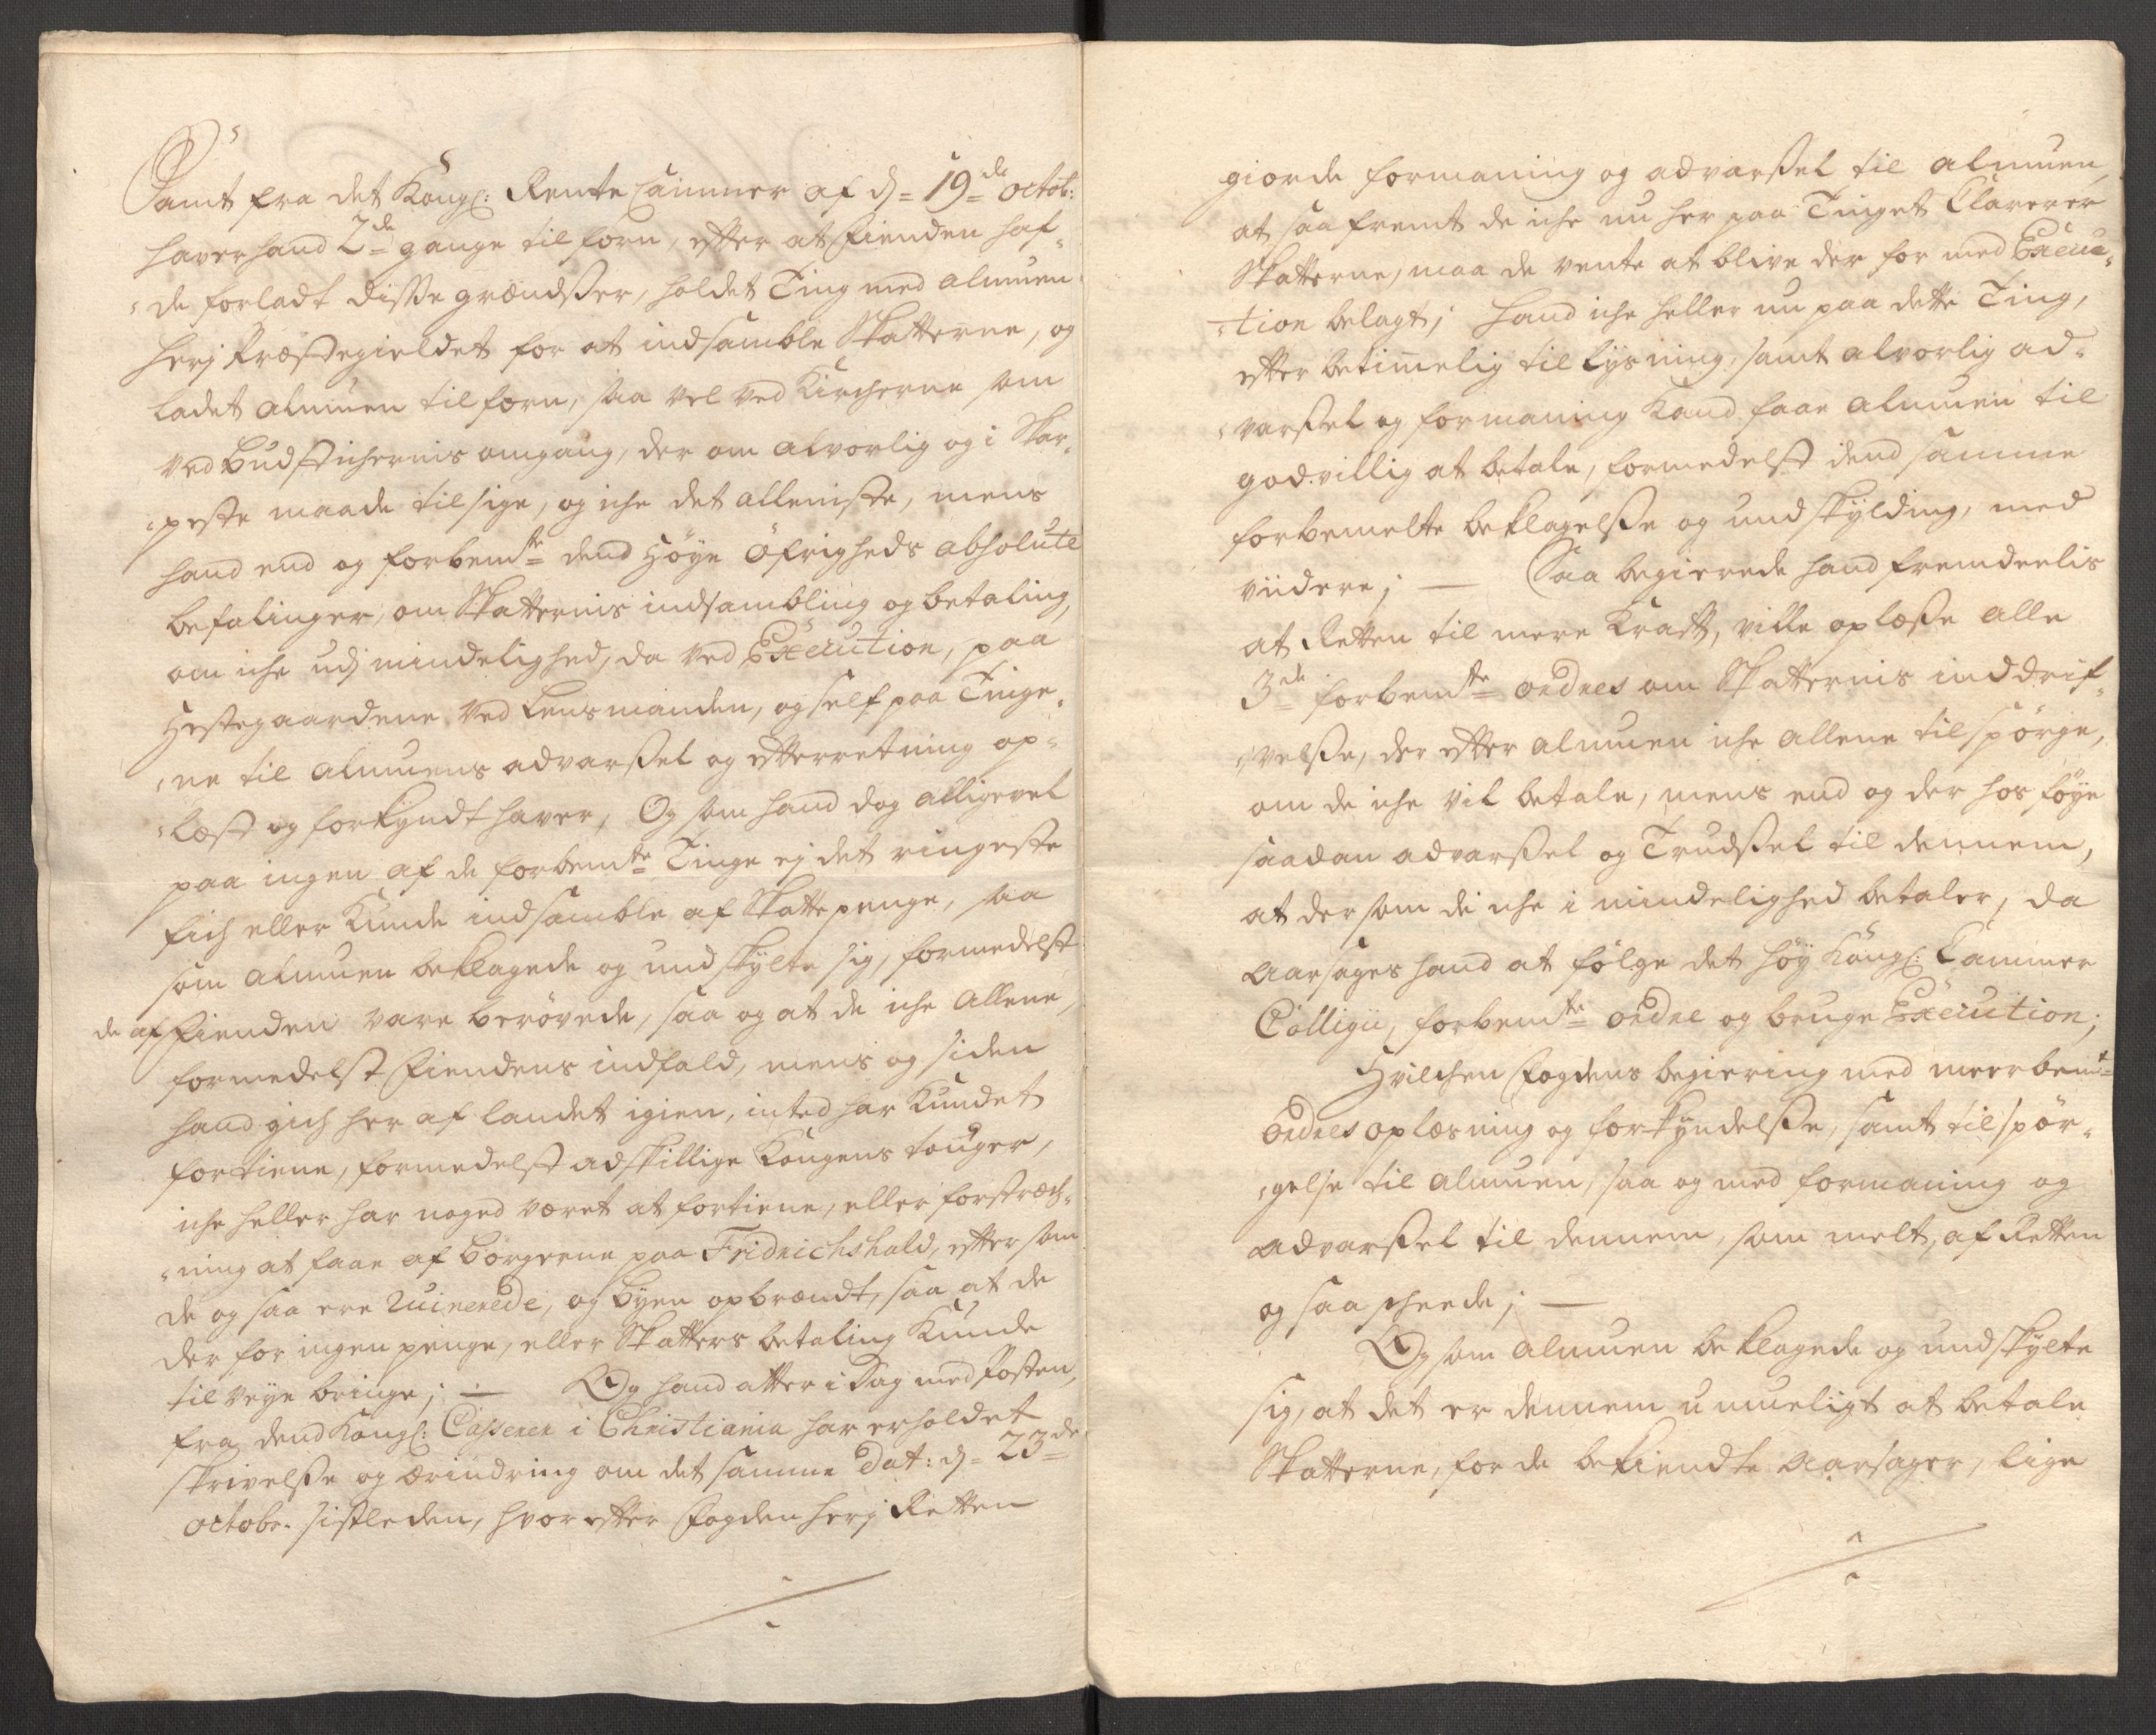 Samt fra det Kongl: Rente Cammer af d= 19de octob:
haver hand 2de gange tilforn, efter at Fienden haf-
de forladt disse grændsser, holdet Ting med almuen
herj Præstegieldet for at indsamble Skatterne, og
ladet almuen tilforn, saa vel ved Kircherne som
ved Budstichernis omgang, der om alvorlig og i Skar-
peste maade tilsige, og iche det alleniste, mens
hand end og forbemte dend Høye Øfrigheds absolute
befalinger, om Skatternis indsambling og betaling,
om iche udj mindelighed, da ved Execution, paa
Hestegaardene ved Lensmanden, og self paa Tinge-
ne til almuens advarssel og efterretning op-
læst og forkyndt haver, Og som hand dog alligevel
paa ingen af de forbemte Tinge ej det ringeste
fich eller Kunde indsamble af Skattepenge, saa
som almuen beklagede og undskylte sig, formedelst
de af Fienden vare berøvede, saa og at de iche allene,
formedelst Fiendens indfald, mens og siden
hand gich her af landet igien, inted har Kundet
fortiene, formedelst adskillige Kongens touger,
iche heller har noged været at fortiene, eller forstræch-
ning at faae af borgerne paa Fridrichshald, efter som
de og saa ere ruinerede, og Byen opbrændt, saa at de
der for ingen penge, eller Skatters betaling Kunde
til veye bringe; — Og hand atter i Dag med Posten,
fra dend Kongl: Casserer i Christiania har erholdet
skrivelsse og erindring om det samme Dat: d= 23de
octobr. sistleden, hvor efter Fogden herj Retten
giorde formaning og advarssel til almuen,
at saa fremt de iche nu her paa Tinget Clarerer
Skatterne, maa de vente at blive der for med Execu-
tion belagt; Hand iche heller nu paa dette Ting,
efter betimelig til lysning, samt alvorlig ad-
varssel og formaning Kand faae almuen til
godvillig at betale, formedelst dend samme
forbemelte beklagelsse og undskylding, med
viidere; — Saa begierede hand fremdeelis
at Retten til mere Kraft, ville oplæsse alle
3de forbemte ordres om Skatternis inddrif-
velsse, der efter almuen iche allene tilspørge,
om de iche vil betale, mens end og der hos føye
saadan advarssel og Trudssel til dennem,
at der som de iche i mindelighed betaler, da
aarsages hand at følge det høy Kongl: Cammer
Colligii, forbemte ordre og bruge Execution;
Hvilchen Fogdens begiering med meerbemte
Ordres oplæsning og forkyndelsse, samt tilspør-
gelse til almuen, saa og med formaning og
advarssel til dennem, som melt, af Retten
og saa scheede; —
Og som almuen beklagede og undskylte
sig, at det er dennem umueligt at betale
Skatterne, for de bekiendte aarsager, lige